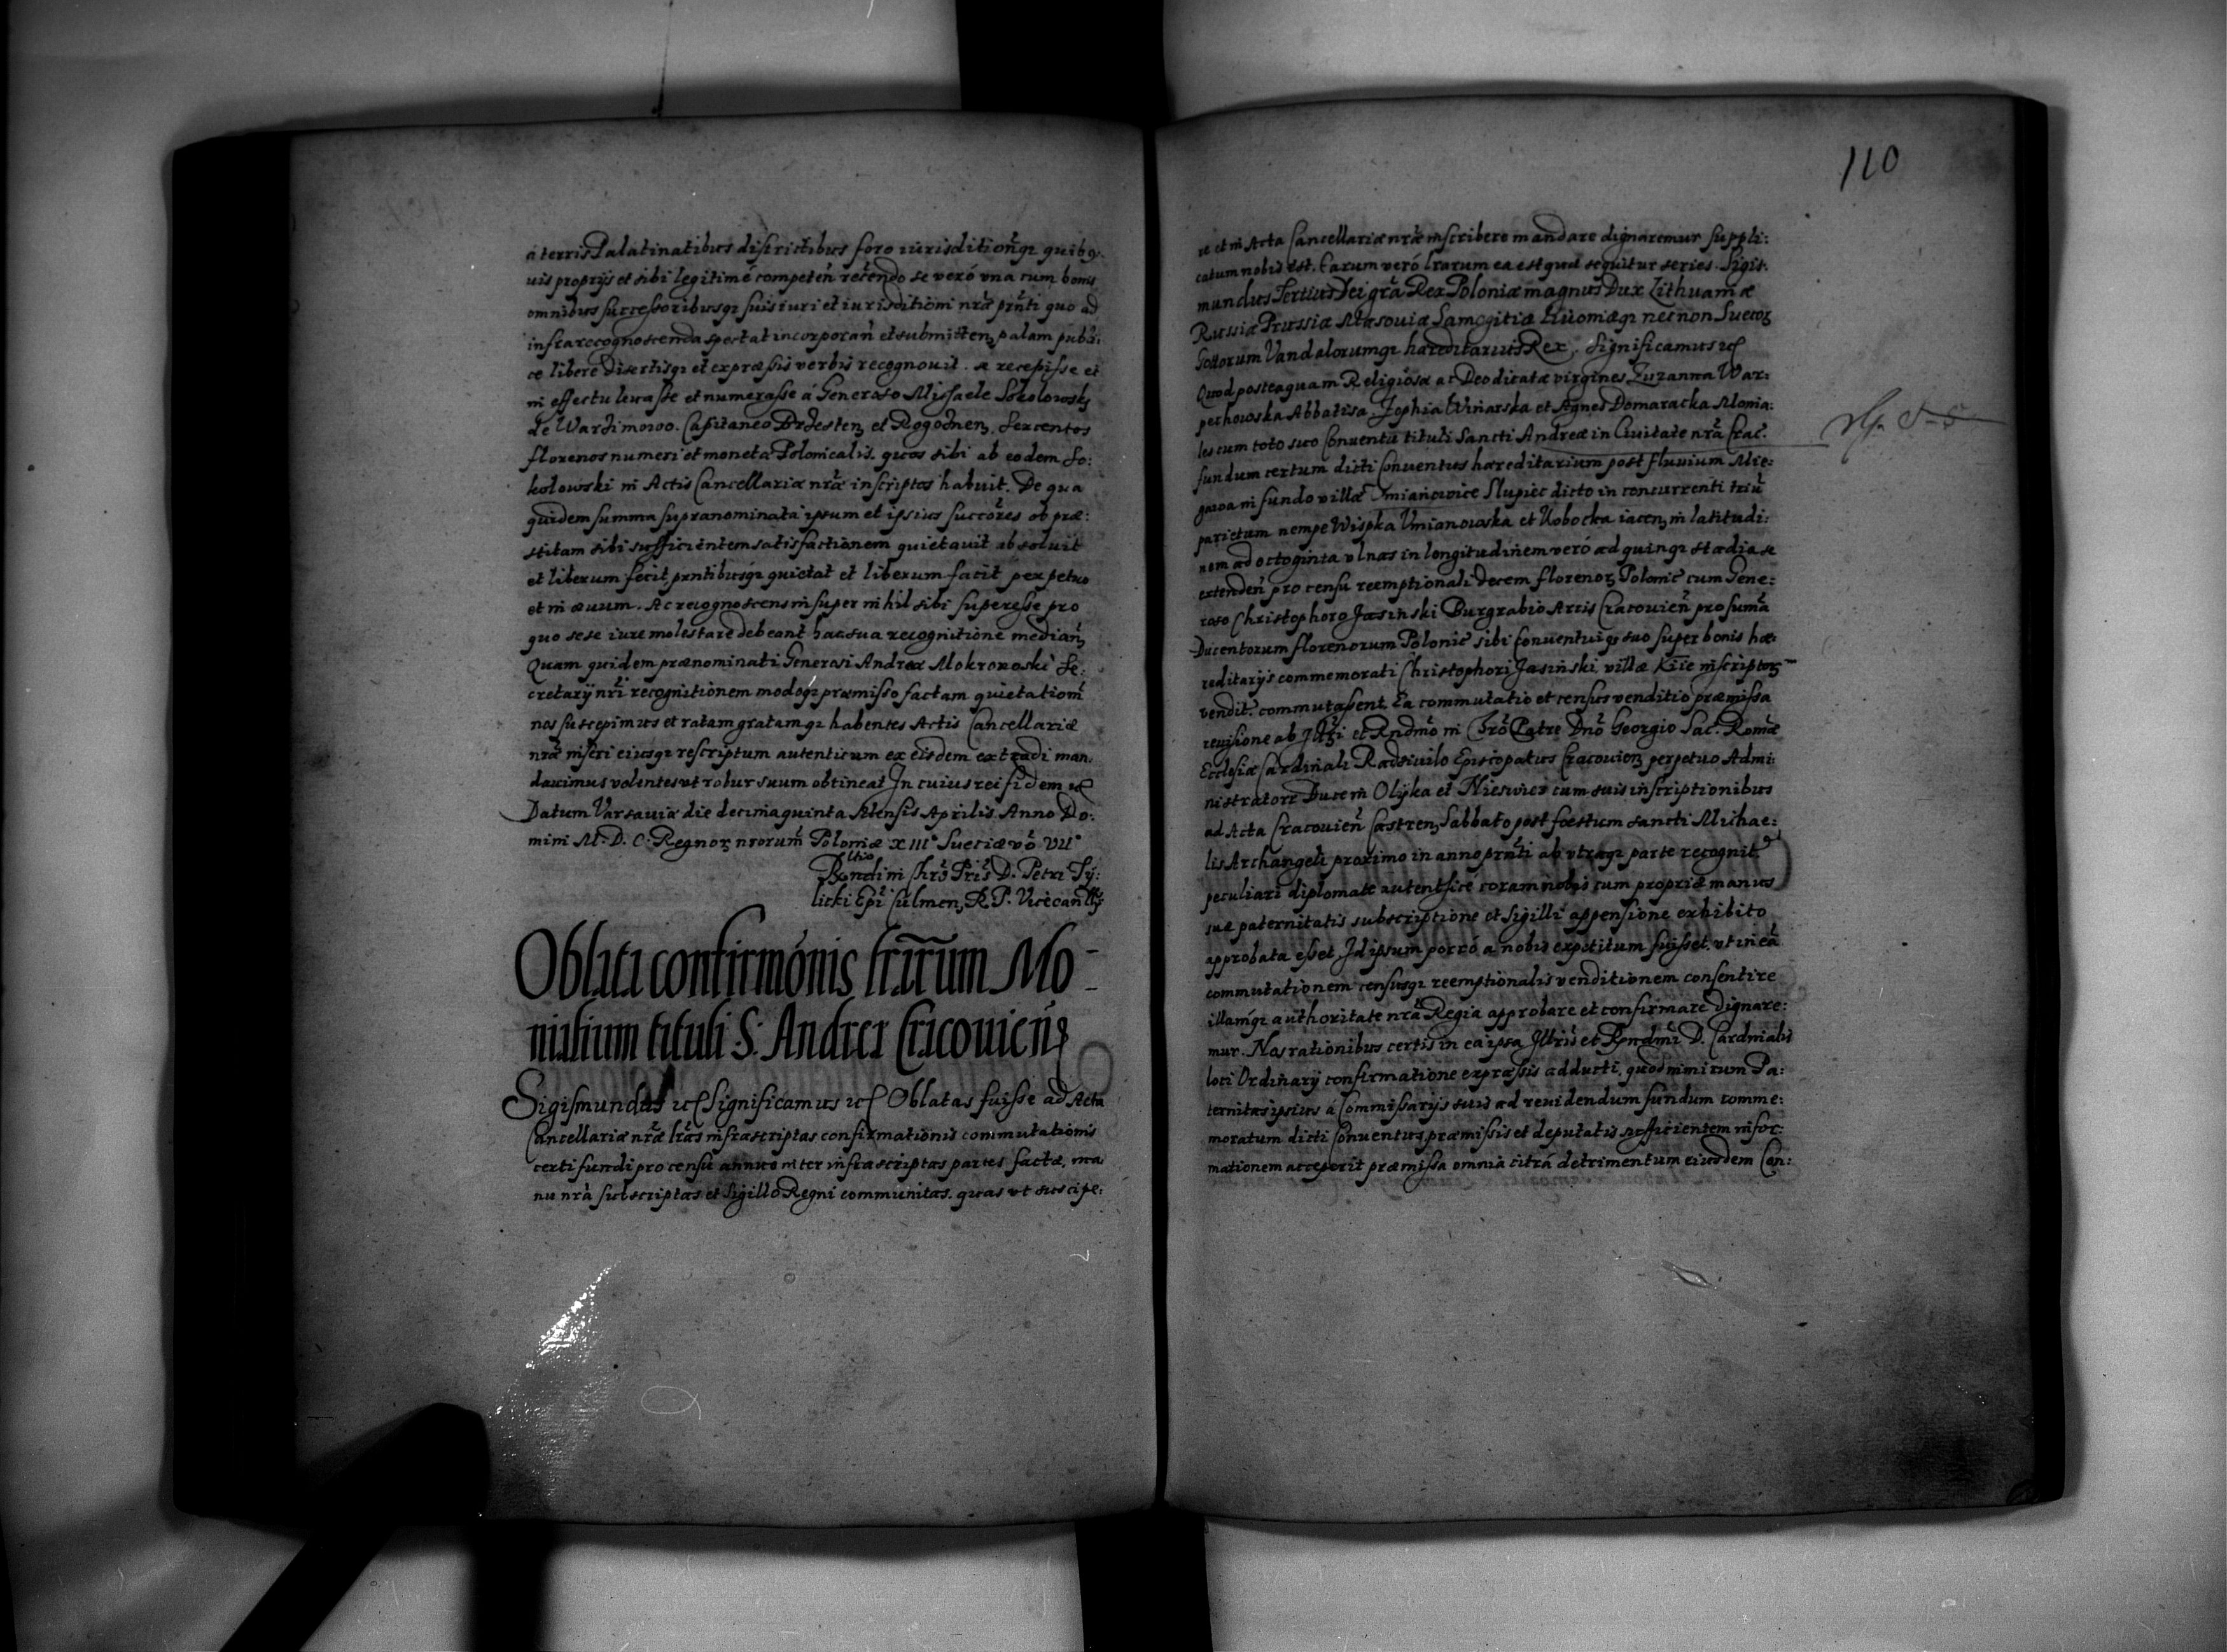 a terris Palatinatibus districtibus foro iurisditioñq; quibq.
uis proprijs et sibi legitimé competeñ recendo se veró vna cum bonis
omnibus successoribusq; suis iuri et iurisditioni nrã prñti quo ad
infra recognoscenda spectat incorporañ et submitteñ palam publi:
ce libere disertisq; et expræssis verbis recognouit. se recepisse et
in effectu leuasse et numerasse á Generoso Missaele Sokolowski
de Wardimowo. Capitaneo Brzesteñ et Rogoźneñ. Sexcentos
florenos numeri et moneta Polonicalis. quos sibi ab eodem So:
kolowski in Actis Cancellariæ nrã inscriptos habuit. De qua
quidem summa supranominata ipsum et ipsius succõres ob præ:
stitam sibi sufficientem satisfactionem quietauit absoluit
et liberum fecit, prntibusq; quietat et liberum facit perpetuo
et in æuum. Ac recognoscens insuper nihil sibi superesse pro
quo sese iure molestare debeant hac sua recognitione medianñ
Quam quidem prænominati Generosi Andreæ Mokronoski Se:
cretarij nrĩ recognitionem modoq; præmisso factam quietationẽ
nos suscepimus et ratam gratamq; habentes Actis Cancellariæ
nrã inseri eiusq; rescriptum autenticum ex eisdem extradi man:
dauimus volentes vt robur suum obtineat In cuius rei fidem &c
Datum Varsauiæ die decima quinta Mensis Aprilis Anno Do:
mini M. D. C. Regnoꝝ nrorum̃ Poloniæ XIII° Sueciæ võ VII°
Rltio
Rendi in Chrõ Pris D. Petri Ty:
licki Epĩ Culmeñ R. P. Vicecanlly
Oblata confirmónis lrarum Mo-
nialium tituli S: Andreæ Cracouieñ
Sigismundus &c Significamus &c Oblatas fuisse ad Acta
Cancellariæ nrã lrãs infrascriptas confirmationis commutationis
certi fundi pro censu annuo inter infrascriptas partes factæ, ma
nu nrã subscriptas et Sigillo Regni communitas. quas vt suscipe:
110
re et in Acta Cancellariæ nrã inscribere mandare dignaremur suppli:
catum nobis est. Earum veró lrarum ea est quæ sequitur series. Sigis.
mundus Tertius Dei grã Rex Poloniæ magnus Dux Lithuaniæ
Russiæ Prussiæ Masouiæ Samogitiæ Liuoniæq; necnon Suecoꝝ
Gottorum Vandalorumq; hæreditarius Rex. Significamus &c
Quod posteaquam Religiosæ ac Deo dicatæ virgines Zuzanna War:
pechowska Abbatisa Zophia Winarska et Agnes Domaracka Monia:
les cum toto suo Conuentu tituli Sancti Andreæ in Ciuitate nrã Crac̃.
fundum certum dicti Conuentus hæreditarium post fluuium Mie:
gawa in fundo villæ Vmianowice Slupiec dicto in concurrenti triũ
parietum nempe Wispka Vmianowska et Kobocka iaceñ in latitudi:
nem ad octoginta vlnas in longitudinem veró ad quinq; stadia se
extendeñ pro censu reemptionali decem florenoꝝ Polonic̃ cum Gene:
roso Christophoro Jasinski Burgrabio Arcis Cracouieñ pro sum̃a
Ducentorum florenorum Polonic̃ sibi Conuentuiq; suo super bonis hæ:
reditarijs commemorati Christophori Jasinski villæ Kiie inscriptoꝝ
vendit. commutassent. Ea commutatio et census venditio præmissa
reuisione ab Jllrĩ et Rndmõ in Chrõ Patre Dnõ Georgio Sac̃. Romæ
Ecclesiæ Cardinali Radziuilo Episcopatus Cracouieñ perpetuo Admi:
nistratore Duce in Olijka et Nieswiez cum suis inscriptionibus
ad Acta Cracouieñ Castreñ Sabbato post fæstum sancti Michae:
lis Archangeli proximo in anno prñti ab vtraq; parte recognit.
peculiari diplomate autentice coram nobis cum propriæ manus
suæ paternitatis subscriptione et Sigilli appensione exhibito
approbata esset. Id ipsum porró a nobis expetitum fuisset, vt in eã
commutationem censusq; reemptionalis venditionem consentire
illamq; authoritate nrã Regia approbare et confirmare dignare:
mur. Nos rationibus certis in ea ipsa Jllris et Rndmi D. Cardinalis
loci Ordinarij confirmatione expræssis adducti, quod nimirum Pa:
ternitas ipsius á Commissarijs suis ad reuidendum fundum comme:
moratum dicti Conuentus præmissis et deputatis sufficientem infor:
mationem acceperit præmissa omnia citrá detrimentum eiusdem Con: